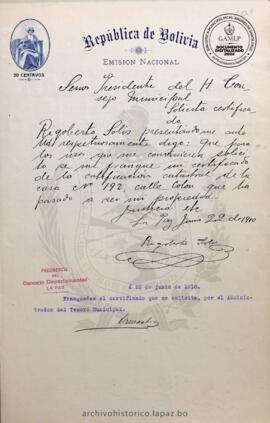 República de Bolivia
EMISION NACIONAL
20 CENTAVOS
GAMLP
DOCUMENTO
DIGITALIZADO
2024
Señor Presidente del H. Con
sejo Municipal
Solicita certifica
do
Rigoberto Solis presentándome ante
Ud. respetuosamente digo: Que para
los usos que me convinieren solici
to se me franquee un certificado
de la catastral de la
casa Nº 192, calle Colón que ha
pasado a ser mi propiedad
Justicia etc
La Paz, Junio 22 de 1910
Rigoberto Solis
PRESIDENCIA
DEL
Concejo Departamental
LA PAZ
á 22 de junio de 1910.
Franquéese el certificado que se solicita, por el Adminis-
trador del Tesoro Municipal.
archivohistorico.lapaz.bo